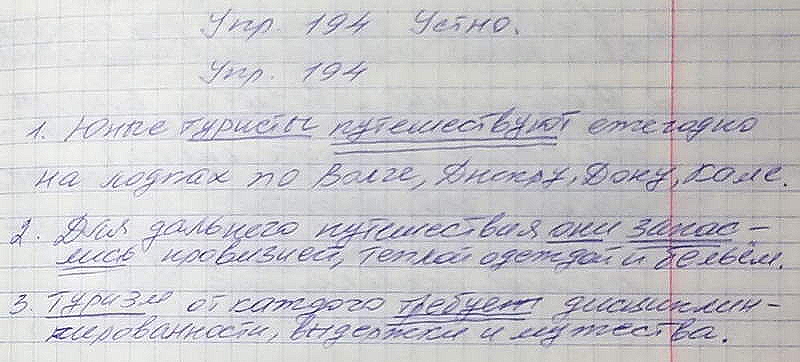 Упр. 194 Устно.
Упр. 194
1. Юные туристы путешествуют ежегодно
на лодках по Волге, Днепру, Дону, Каме.
2. Для дальнего путешествия они запас-
лись провизией, тёплой одеждой и бельём.
3. Туризм от каждого требует дисциплин-
нированности, выдержки и мужества.